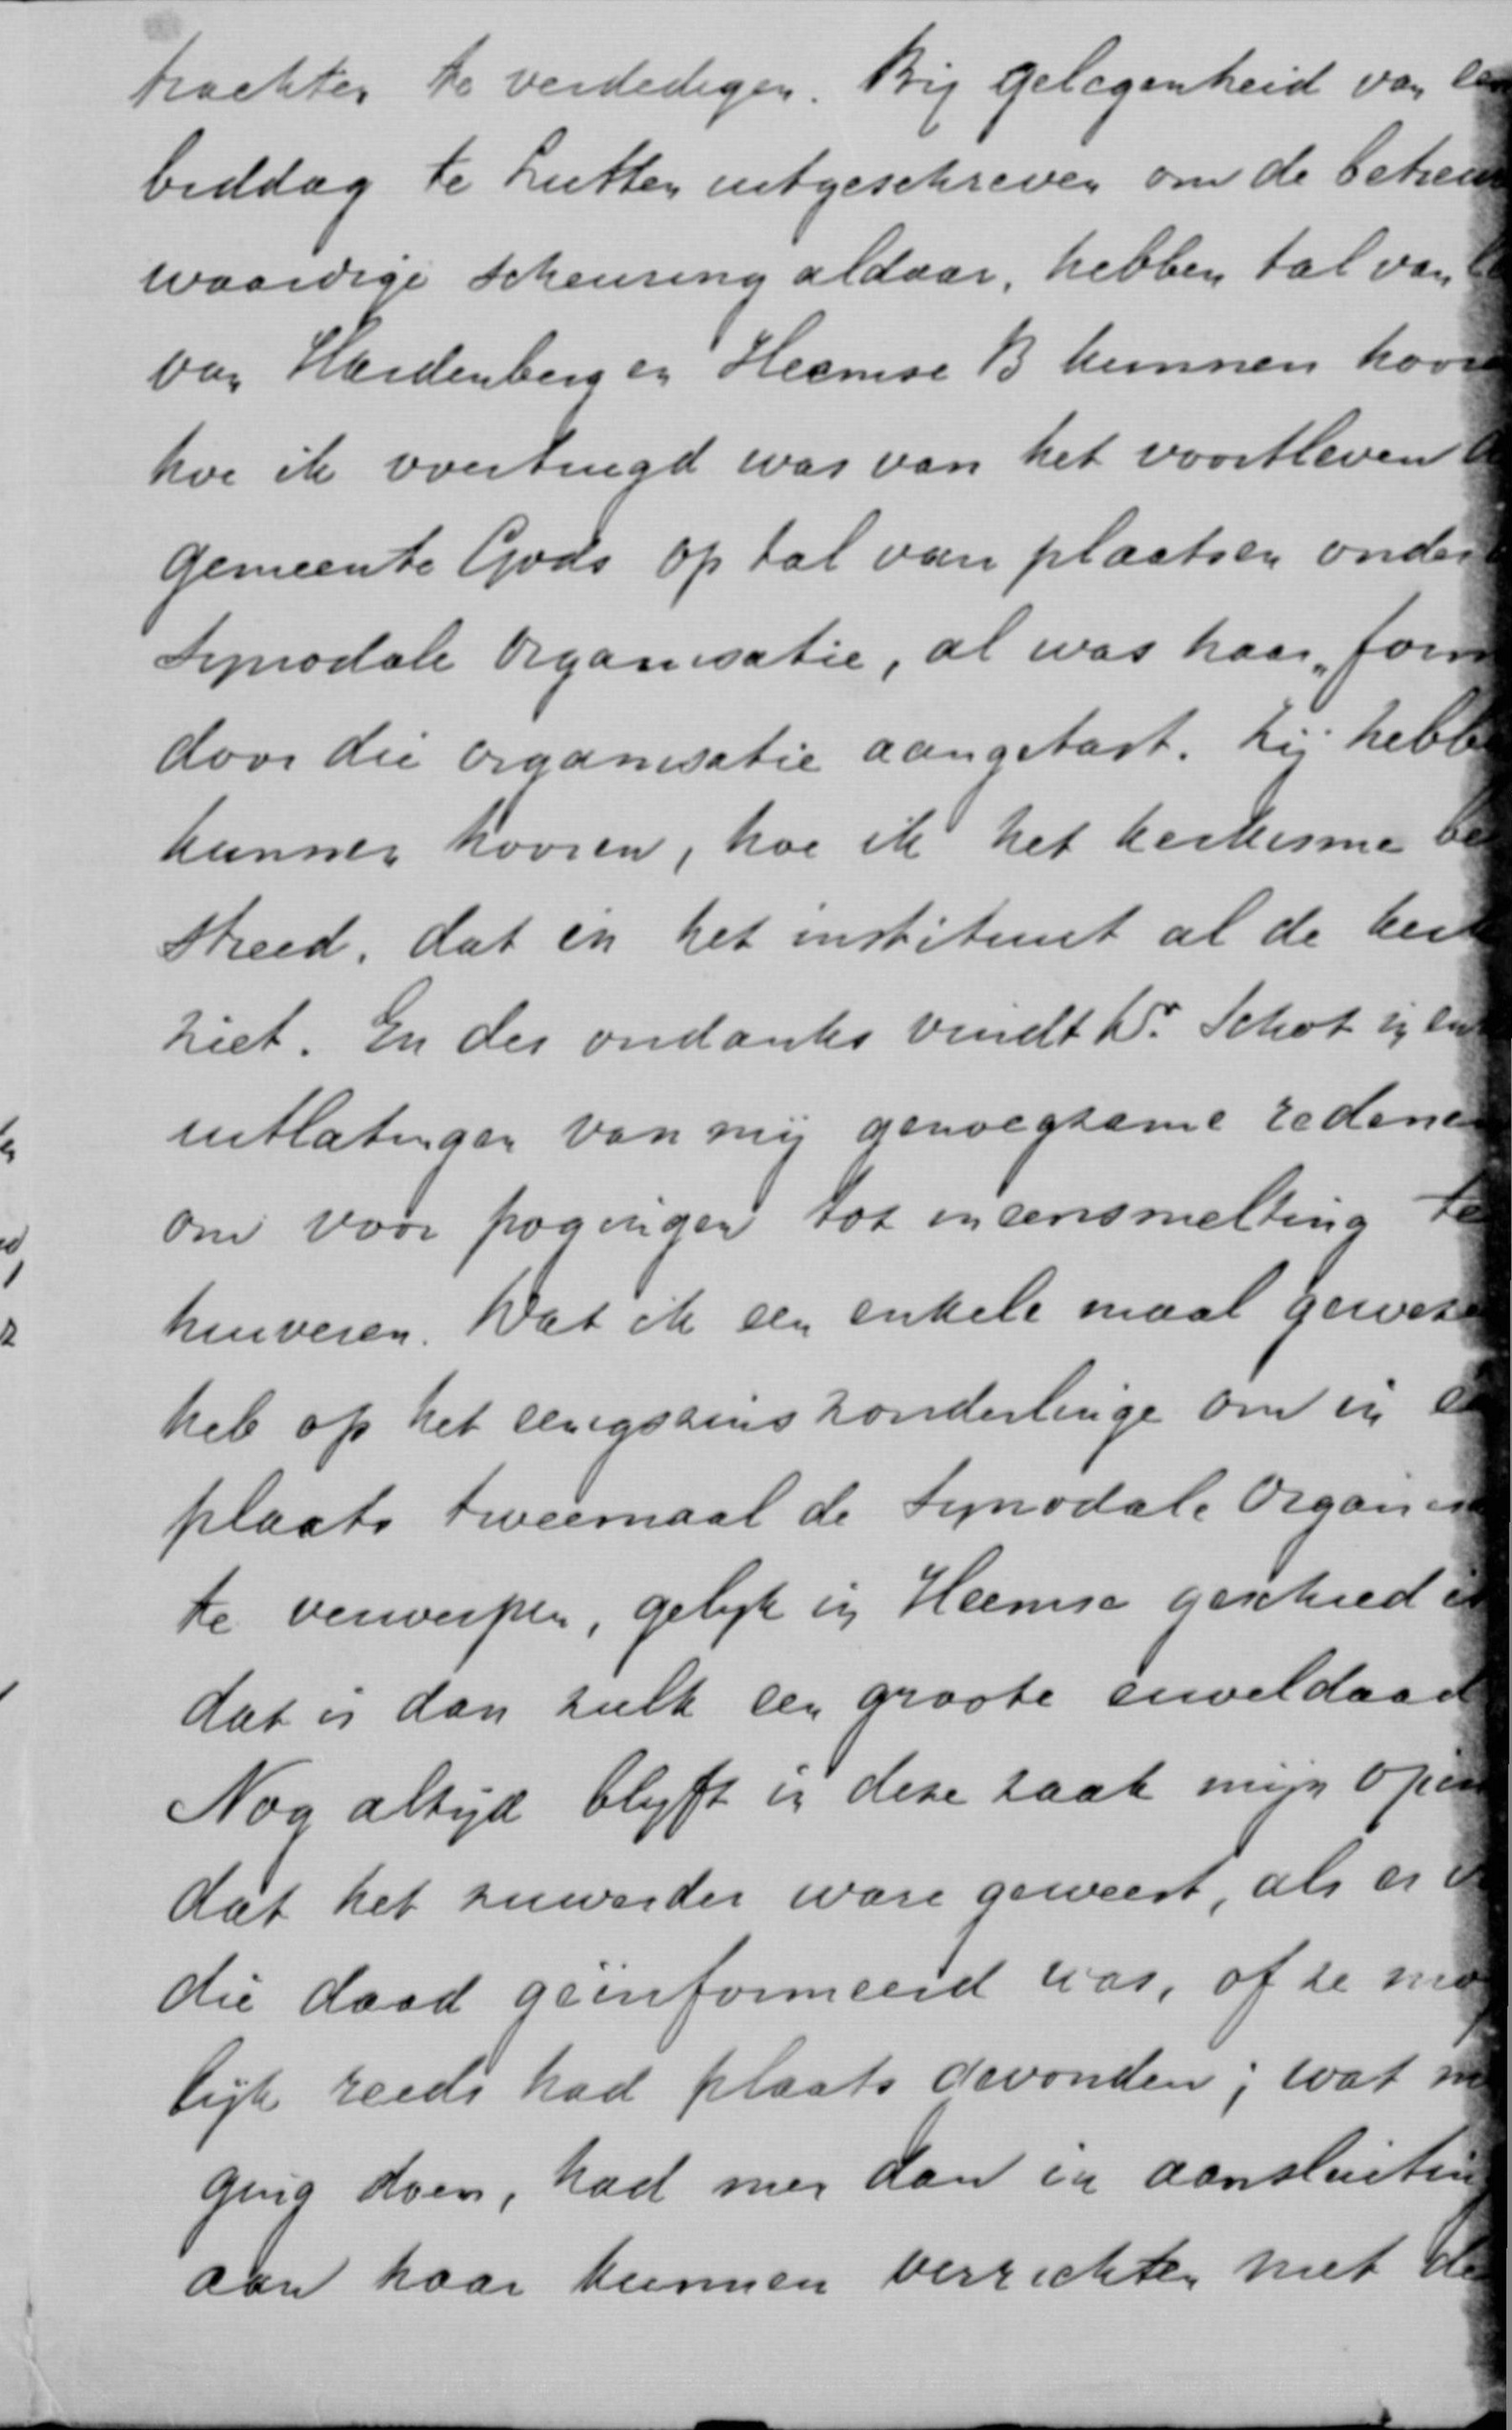 trachten te verdedigen. Bij gelegenheid van een
biddag te Lutten uitgeschreven om de betreur
waardige scheuring aldaar, hebben tal van
van Hardenberg en Heemse B kunnen hoore
hoe ik overtuigd was van het voortleven
gemeente Gods op tal van plaatsen onder
Synodale Organisatie, al was haar „form
door die organisatie aangetast. Zij hebbe
kunnen hooren, hoe ik het kerkisme be
streed, dat in het instituut al de kerk
ziet. En des ondanks vindt Ds. Schot in enk
uitlatingen van mij genoegzame redenen
om voor pogingen tot ineensmelting te
huiveren. Wat ik een enkele maal geweze
heb op het eenigszins zonderlinge om in ee
plaats tweemaal de Synodale Organisa
te verwerpen, gelijk in Heemse geschied is
dat is dan zulk een groote euveldaad
Nog altijd blijft in deze zaak mijn opin
dat het zuiverder ware geweest, als er
die daad geïnformeerd was, of ze mo
lijk reeds had plaats gevonden; wat m
ging doen, had men dan in aansluiting
aan haar kunnen verrichten met de